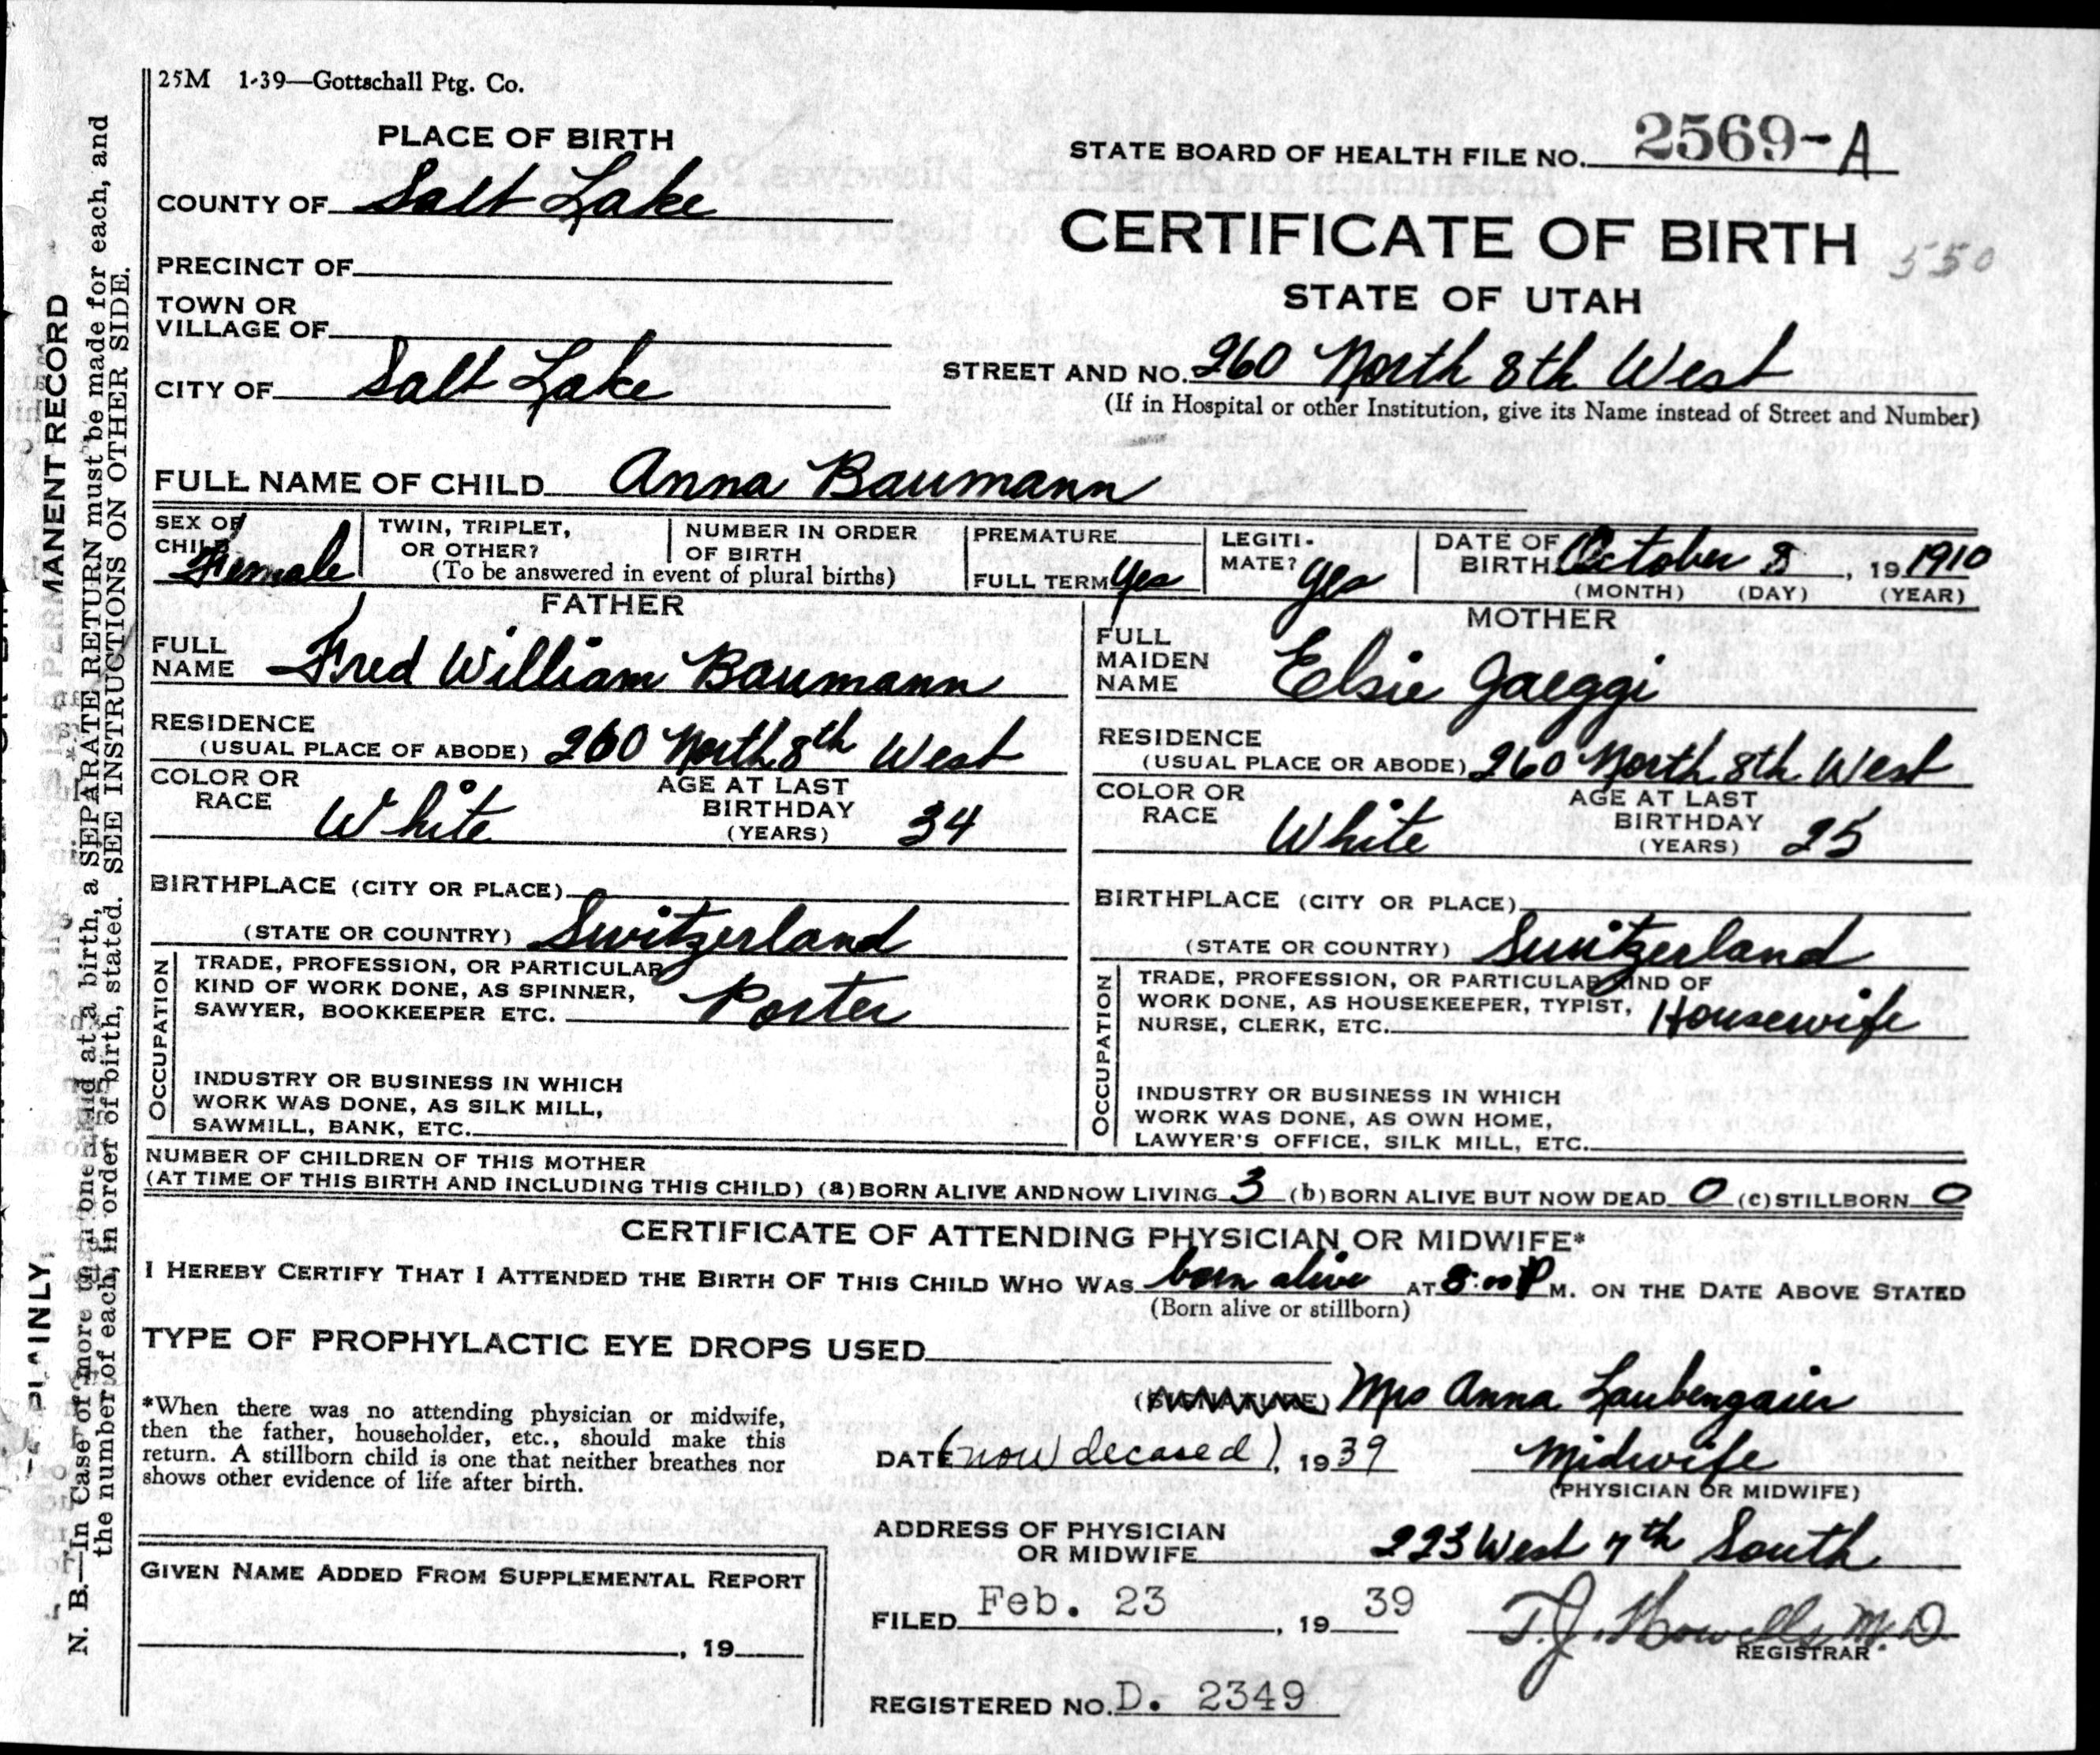 25M 1-39—Gottschall Ptg. Co.
PLACE OF BIRTH
STATE BOARD OF HEALTH FILE NO. 2569-A
COUNTY OF Salt Lake
CERTIFICATE OF BIRTH 550
PRECINCT OF
STATE OF UTAH
TOWN OR
VILLAGE OF
STREET AND NO. 260 North 8th West
CITY OF Salt Lake
(If in Hospital or other Institution, give its Name instead of Street and Number)
FULL NAME OF CHILD Anna Baumann
SEX OF
CHILD Female
TWIN, TRIPLET,
OR OTHER?
NUMBER IN ORDER
OF BIRTH
(To be answered in event of plural births)
PREMATURE
FULL TERM Yes
LEGITI-
MATE? Yes
DATE OF
BIRTH October 8, 19 1910
(MONTH) (DAY) (YEAR)
FATHER
FULL
NAME Fred William Baumann
RESIDENCE
(USUAL PLACE OF ABODE) 260 North 8th West
COLOR OR
RACE White
AGE AT LAST
BIRTHDAY
(YEARS) 34
BIRTHPLACE (CITY OR PLACE)
(STATE OR COUNTRY) Switzerland
OCCUPATION
TRADE, PROFESSION, OR PARTICULAR
KIND OF WORK DONE, AS SPINNER,
SAWYER, BOOKKEEPER ETC. Porter
INDUSTRY OR BUSINESS IN WHICH
WORK WAS DONE, AS SILK MILL,
SAWMILL, BANK, ETC.
MOTHER
FULL
MAIDEN
NAME Elsie Jaeggi
RESIDENCE
(USUAL PLACE OR ABODE) 260 North 8th West
COLOR OR
RACE White
AGE AT LAST
BIRTHDAY
(YEARS) 25
BIRTHPLACE (CITY OR PLACE)
(STATE OR COUNTRY) Switzerland
OCCUPATION
TRADE, PROFESSION, OR PARTICULAR KIND OF
WORK DONE, AS HOUSEKEEPER, TYPIST,
NURSE, CLERK, ETC. Housewife
INDUSTRY OR BUSINESS IN WHICH
WORK WAS DONE, AS OWN HOME,
LAWYER'S OFFICE, SILK MILL, ETC.
NUMBER OF CHILDREN OF THIS MOTHER
(AT TIME OF THIS BIRTH AND INCLUDING THIS CHILD) (a) BORN ALIVE AND NOW LIVING 3 (b) BORN ALIVE BUT NOW DEAD 0 (c) STILLBORN 0
CERTIFICATE OF ATTENDING PHYSICIAN OR MIDWIFE*
I HEREBY CERTIFY THAT I ATTENDED THE BIRTH OF THIS CHILD WHO WAS born alive AT 8:00 P M. ON THE DATE ABOVE STATED
(Born alive or stillborn)
TYPE OF PROPHYLACTIC EYE DROPS USED
*When there was no attending physician or midwife,
then the father, householder, etc., should make this
return. A stillborn child is one that neither breathes nor
shows other evidence of life after birth.
(SIGNATURE) Mrs Anna Laubengaier
DATE (now decased), 1939 Midwife
(PHYSICIAN OR MIDWIFE)
ADDRESS OF PHYSICIAN
OR MIDWIFE 223 West 7th South
GIVEN NAME ADDED FROM SUPPLEMENTAL REPORT
, 19
FILED Feb. 23, 19 39 T. J. Howells M. D.
REGISTRAR
REGISTERED NO. D. 2349
PLAINLY,
PERMANENT RECORD
N. B.—In Case of more than one child at a birth, a SEPARATE RETURN must be made for each, and
the number of each, in order of birth, stated. SEE INSTRUCTIONS ON OTHER SIDE.